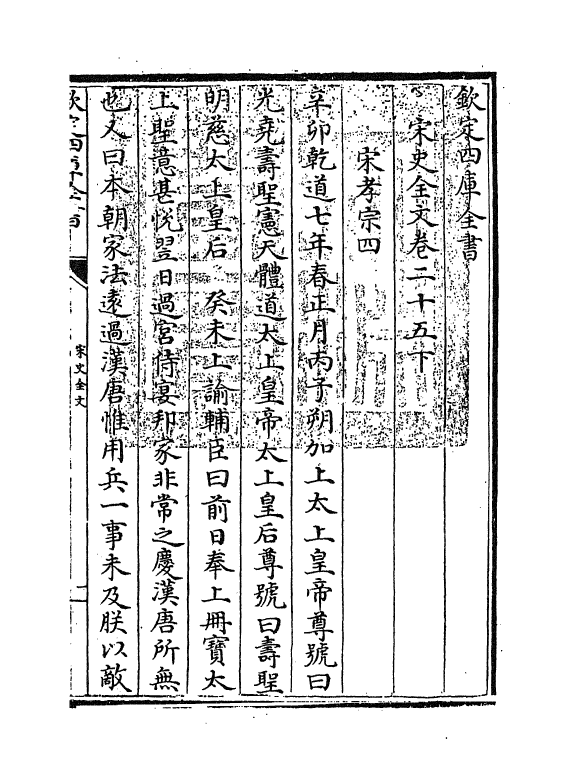 欽定四庫全書
宋史全文卷二十五下
宋孝宗四
辛卯乾道七年春正月丙子朔加上太上皇帝尊號曰
光堯壽聖憲天體道太上皇帝太上皇后尊號曰壽聖
明慈太上皇后 癸未上諭輔臣曰前日奉上冊寶太
上聖意甚悅翌日過宮侍宴邦家非常之慶漢唐所無
也又曰本朝家法遠過漢唐惟用兵一事未及朕以敵
欽定四庫全書
宋史全文
一